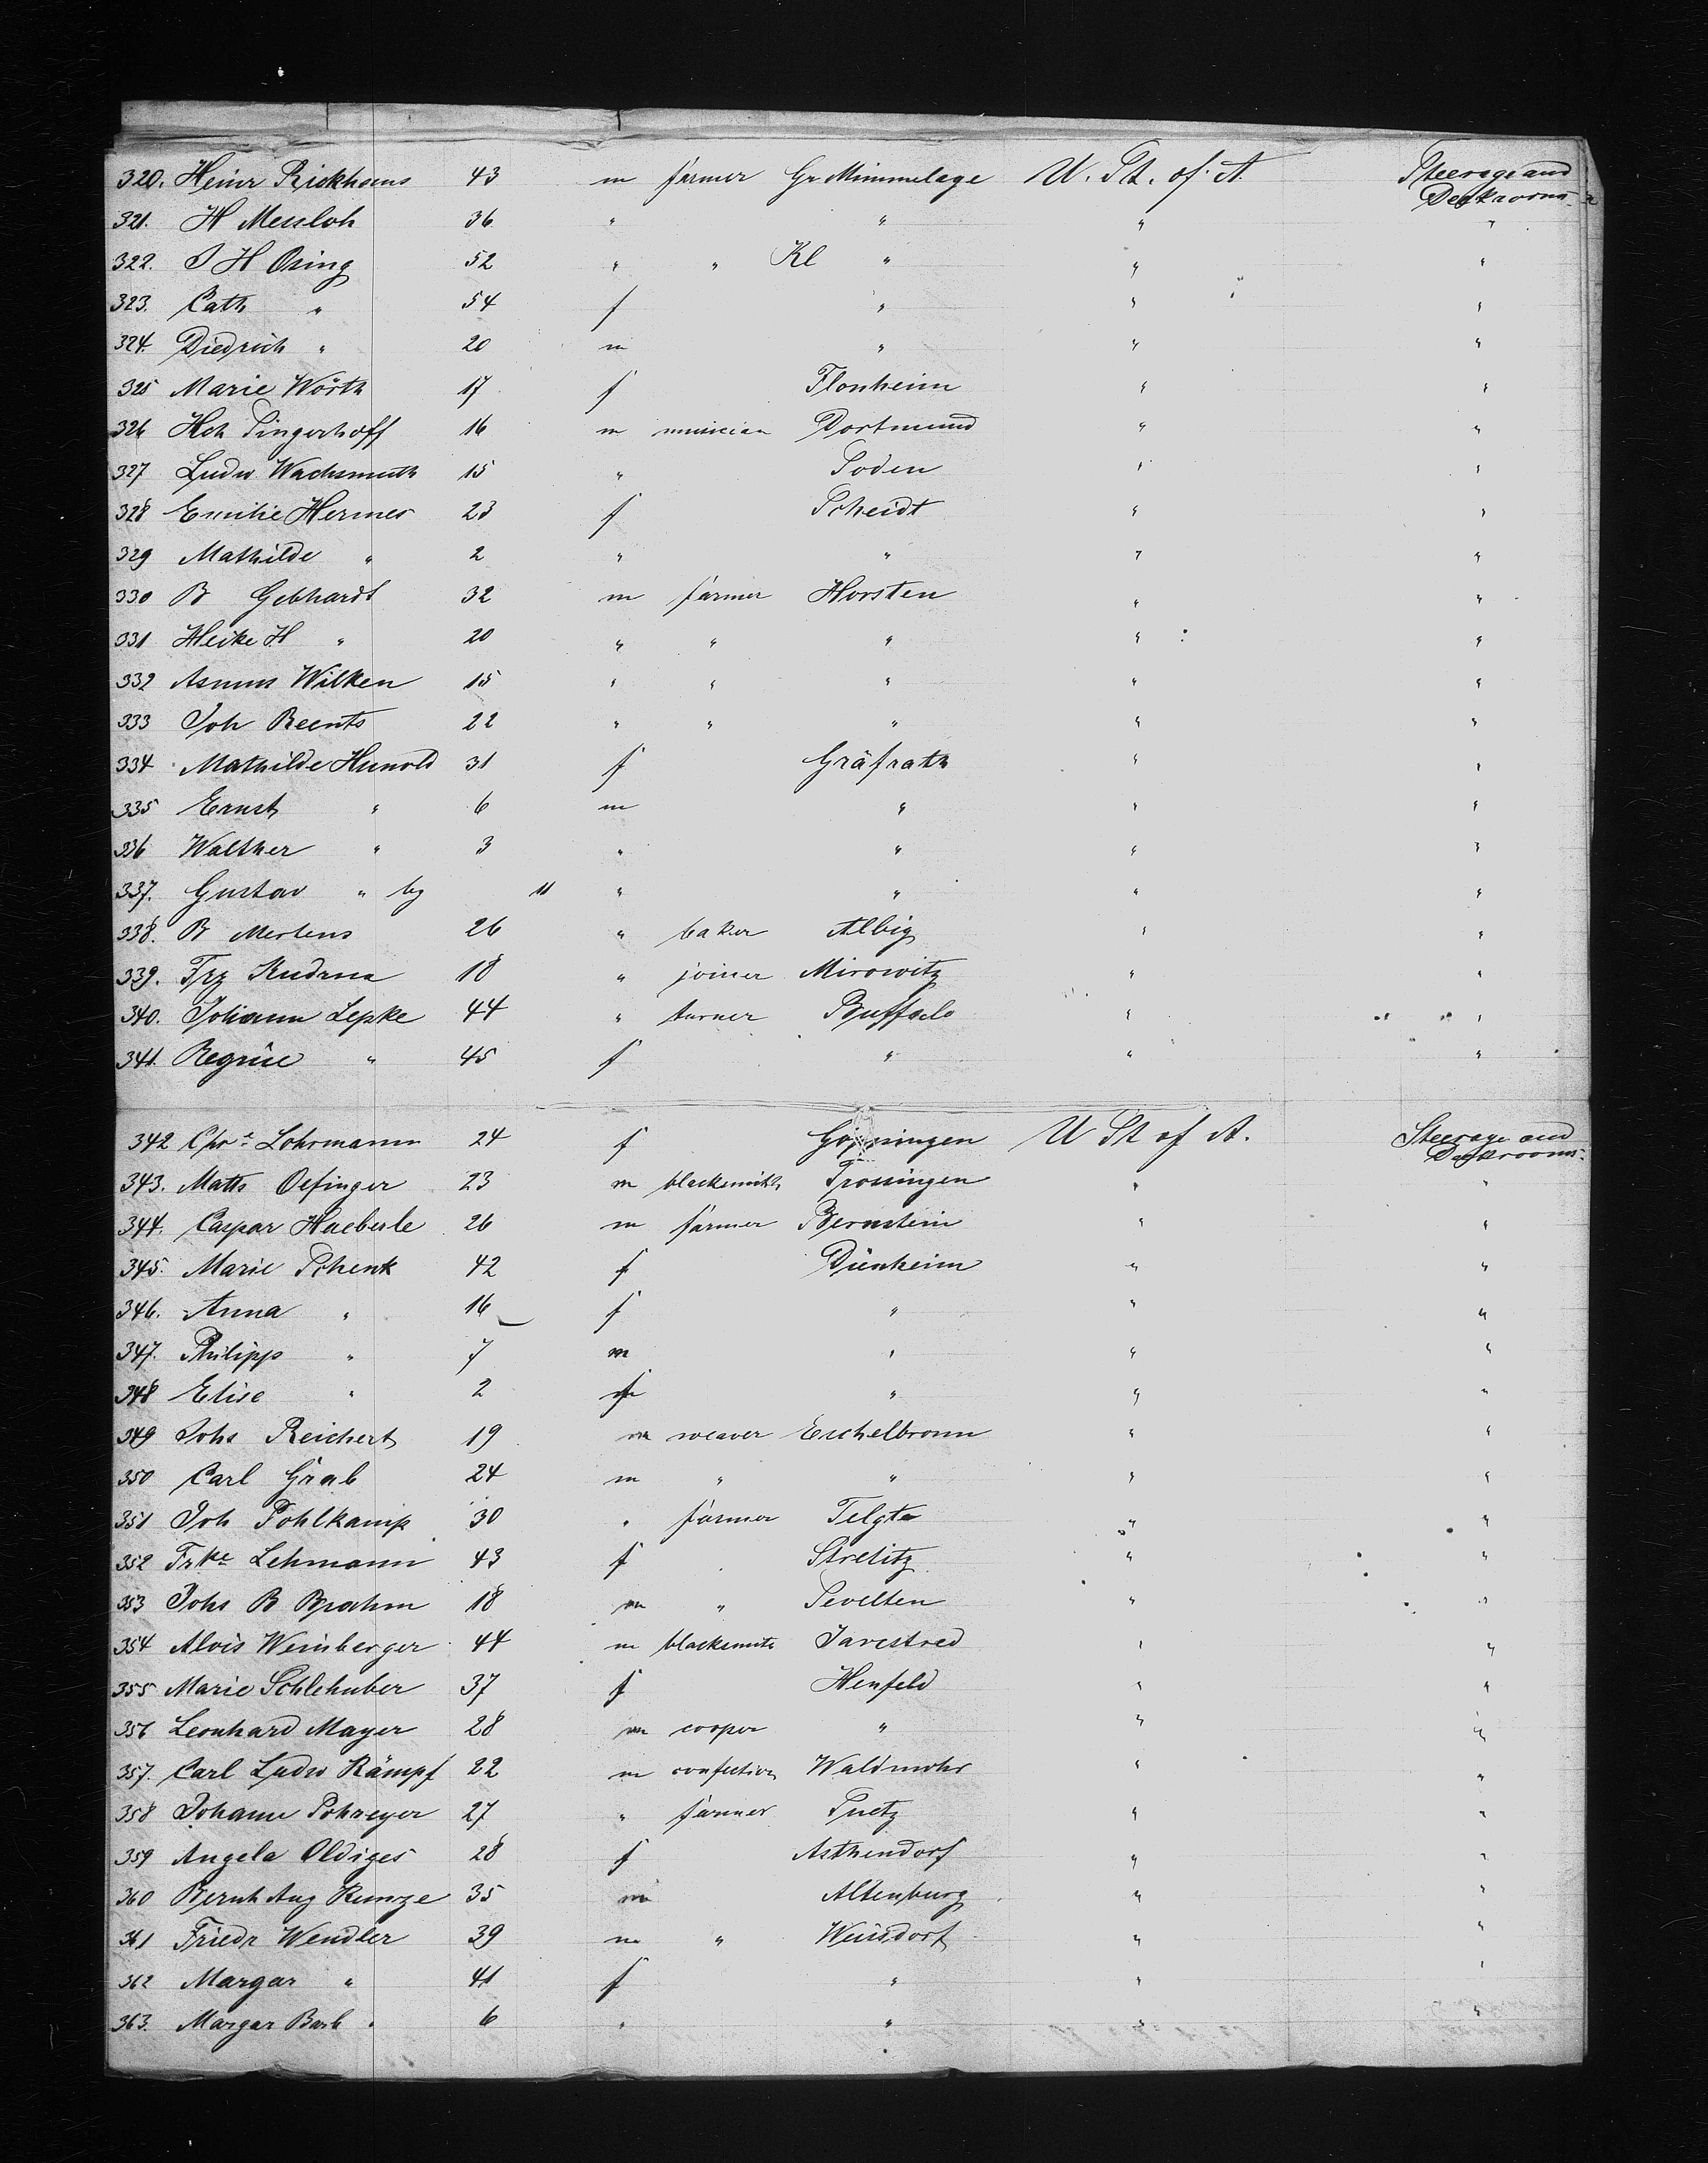 320. Heinr Rickhoens 43 m farmer Gr Mimmelage U. St. of. A. Steerage and Deckrooms
321. H Messloh 36 " " " "
322. J H Osing 52 " " Kl " " "
323. Cath " 54 f " " "
324. Diedrich " 20 m " " "
325 Marie Wörth 17 f Flonheim " "
326 Hch Singerhoff 16 m musician Dortmund " "
327 Ludw Wachsmuth 15 " Soden " "
328 Emilie Hermes 23 f Scheidt " "
329 Mathilde " 2 " " " "
330 B Gebhardt 32 m farmer Horsten " "
331 Heike H " 20 " " " " "
332 Asmus Wilken 15 " " " " "
333 Joh Beents 22 " " " " "
334 Mathilde Hunold 31 f Gräfrath " "
335 Ernst " 6 m " " "
336 Walther " 3 " " " "
337. Gustav " by 11 " " " "
338. B Mertens 26 " baker Albig " "
339. Frz Kudrna 18 " joiner Mirowitz " "
340. Johann Lepke 44 " turner Buffalo " "
341. Regine " 45 f " " "
342 Chre Lohrmann 24 f Gönningen U St of A. Steerage and Deckrooms
343. Matth Oefinger 23 m blacksmith Trossingen " "
344. Caspar Haeberle 26 m farmer Bernstein " "
345. Marie Schenk 42 f Dienheim " "
346. Anna " 16 f " " "
347. Philipp " 7 m " " "
348 Elise " 2 f " " "
349 Johs Reichert 19 m weaver Eschelbronn " "
350 Carl Grab 24 m " " " "
351 Joh Pohlkamp 30 " farmer Telgte " "
352 Frke Lehmann 43 f Strelitz " "
353 Johs B Brahm 18 m " Sevelten " "
354 Alois Weinberger 44 m blacksmith Jarestred " "
355 Marie Schlehuber 37 f Henfeld " "
356 Leonhard Mayer 28 m cooper " " "
357. Carl Ludw Kämpf 22 m confection Waldmohr " "
358 Johann Schreyer 27 " farmer Suetz " "
359 Angela Oldiges 28 f Asthendorf " "
360 Bernh Aug Kunze 35 m Altenburg " "
361 Friedr Wendler 39 m " Weisdorf " "
362 Margar " 41 f " " "
363. Margar Barb " 6 " " " "